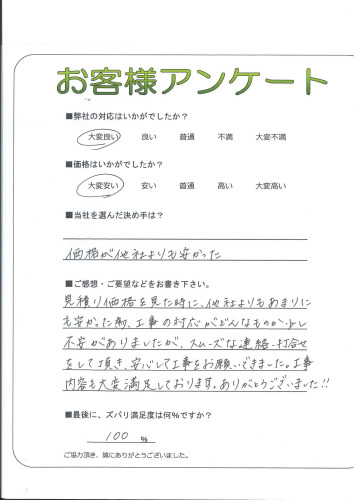 お客様アンケート
■弊社の対応はいかがでしたか？
大変良い 良い 普通 不満 大変不満
■価格はいかがでしたか？
大変安い 安い 普通 高い 大変高い
■当社を選んだ決め手は？
価格が他社よりも安かった
■ご感想・ご要望などをお書き下さい。
見積り価格を見た時に、他社よりもあまりに
も安かった為、工事の対応がどんなものか少し
不安がありましたが、スムーズな連絡・打合せ
をして頂き、安心して工事をお願いできました。工事
内容も大変満足しております。ありがとうございました!!
■最後に、ズバリ満足度は何%ですか？
100 %
ご協力頂き、誠にありがとうございました。